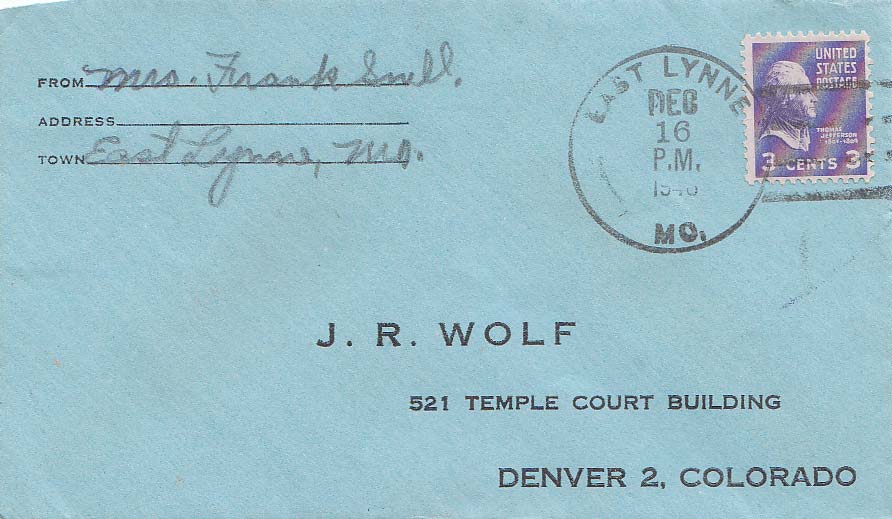 FROM Mrs. Frank Snell.
ADDRESS
TOWN East Lynne, Mo.
EAST LYNNE
DEC
16
P.M.
MO.
UNITED
STATES
POSTAGE
THOMAS
JEFFERSON
1801-1809
3 CENTS 3
J. R. WOLF
521 TEMPLE COURT BUILDING
DENVER 2, COLORADO